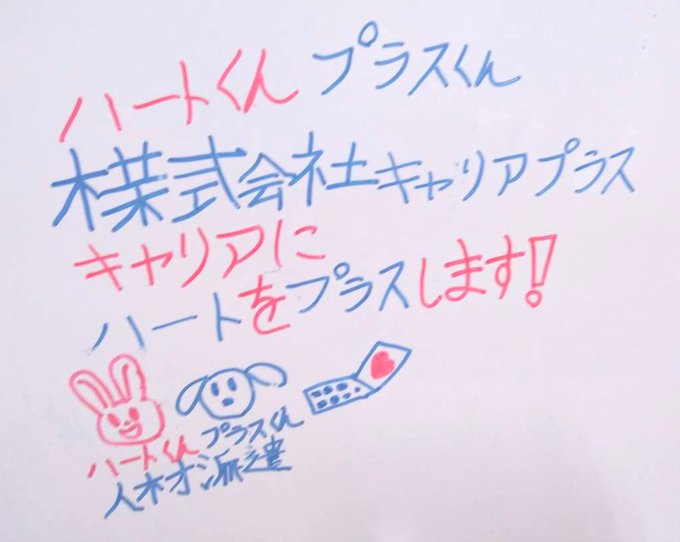 ハートくん プラスくん
株式会社キャリアプラス
キャリアに
ハートをプラスします!
ハートくん プラスくん
人材派遣